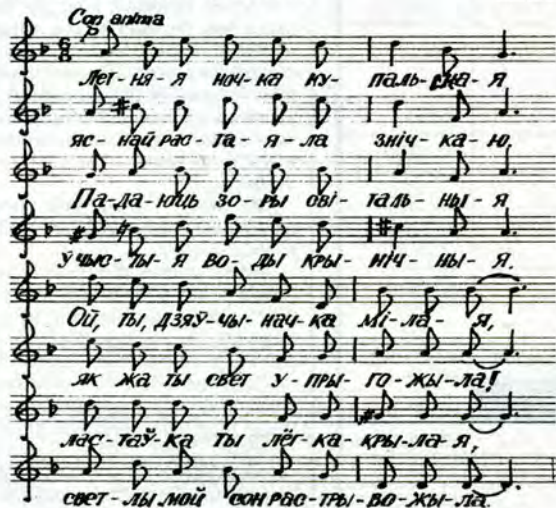 Con anima
p
Лет-ня-я ноч-ка ку-паль-ска-я
яс-най рас-та-я-ла зніч-ка-ю.
Па-да-юць зо-ры сві-таль-ны-я
ў чыс-ты-я во-ды кры-ніч-ны-я.
Ой, ты, дзяў-чы-нач-ка мі-ла-я,
як жа ты свет у-пры-го-жы-ла!
лас-таў-ка ты лёг-ка-кры-ла-я,
свет-лы мой сон рас-тры-во-жы-ла.